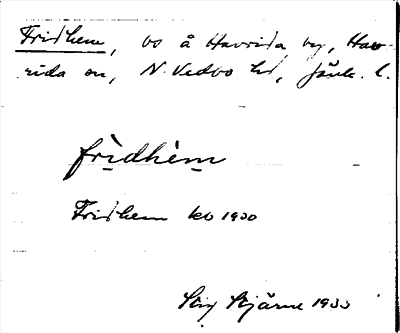 Fridhem, vo å Havrida by, Hav-
rida sn, N. Vedbo hd, Jönk. l.
frìdhèm
Fridhem kv 1930
Stig Stjärne 1933